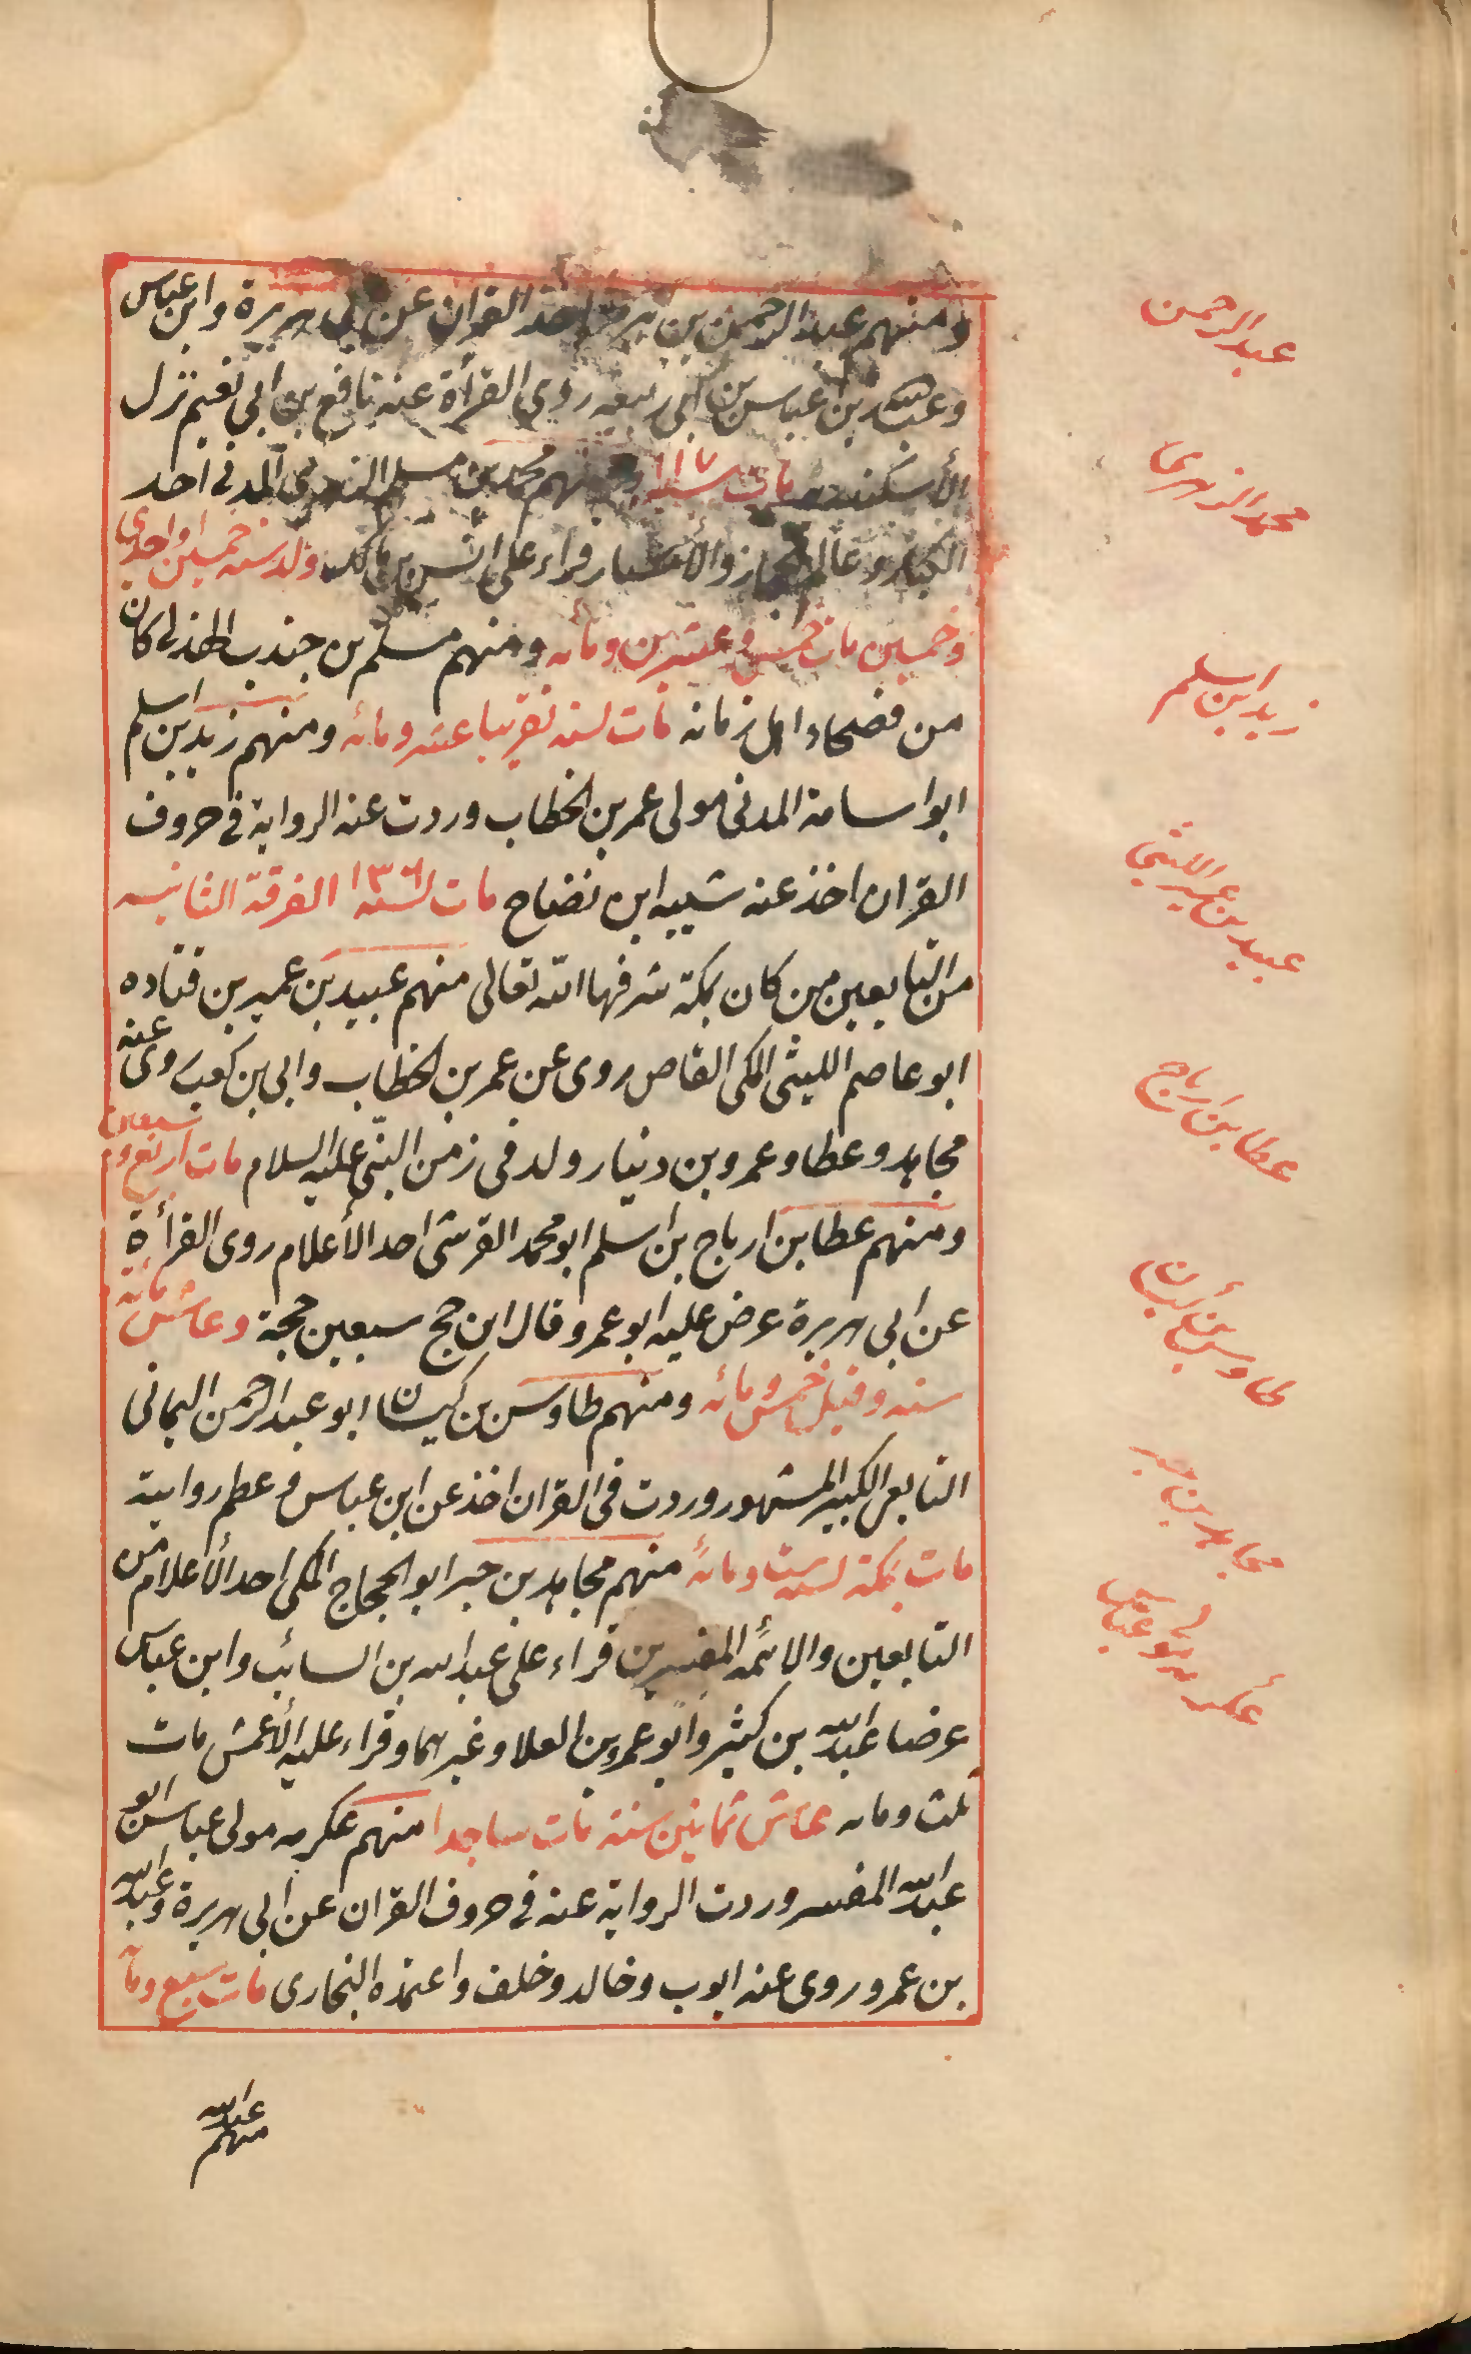 ومنهم عبد الرحمن بن هرمز اخذ القران عن ابي هريرة وابن عباس
وعبد الله بن عباس بن ابي ربيعه روي القرأة عنه نافع بن ابي نعيم نزل
الأسكندريه مات سنه ١١٧ ومنهم محمد بن مسلم الزهري المدني احد
الكبار وعالم الحجاز والأمصار قراء على انس بن مالك ولد سنه خمسين او احدي
وخمسين مات خمس وعشرين ومأيه ومنهم مسلم بن جندب الهذلى كان
من فصحاء اهل زمانه مات لسنه تقريبا عشر ومائه ومنهم زيد بن اسلم
ابو اسامة المدنى مولى عمر بن الخطاب وردت عنه الرواية في حروف
القران اخذ عنه شيبه ابن نضاح مات لسنه ١٣٦ الفرقة الثانيه
من التابعين من كان بمكة شرفها الله تعالى منهم عبيد بن عمير بن قتاده
ابو عاصم الليثى المكى القاص روى عن عمر بن الخطاب وابي بن كعب روى عنه
مجاهد وعطا وعمرو بن دينار ولد فى زمن النبى عليه السلام مات اربع وسبعين
ومنهم عطا بن ارباح بن اسلم ابو محمد القرشى احد الأعلام روى القرأة
عن ابى هريرة عرض عليه ابو عمرو قال ابن حج سبعين حجة وعاش مائة
سنه وقيل خمس ومائه ومنهم طاوس بن كيسان ابو عبد الرحمن اليمانى
التابعى الكبير المشهور وردت فى القران اخذ عن ابن عباس وعظم روايته
مات بمكة لسنه ست ومائة منهم مجاهد بن جبر ابو الحجاج المكى احد الأعلام من
التابعين والائمه المفسرين قراء على عبد الله بن السائب وابن عباس
عرضا عبد الله بن كثير وابو عمرو بن العلا وغيرهما وقراء عليه الأعمش مات
ثلث ومايه عاش ثمانين سنة مات ساجدا منهم عكرمه مولى عباس ابو
عبد الله المفسر وردت الرواية عنه في حروف القران عن ابى هريرة وعبد الله
بن عمر وروى عنه ايوب وخالد وخلف واعتمده البخارى مات سبع ومأ
عبد الله
منهم
عبد الرحمن
محمد الزهرى
زيد ابن اسلم
عبيد بن عمير الليثى
عطا بن ارباح
طاوس بن كيسان
مجاهد بن جبر
عكرمه مولى عباس